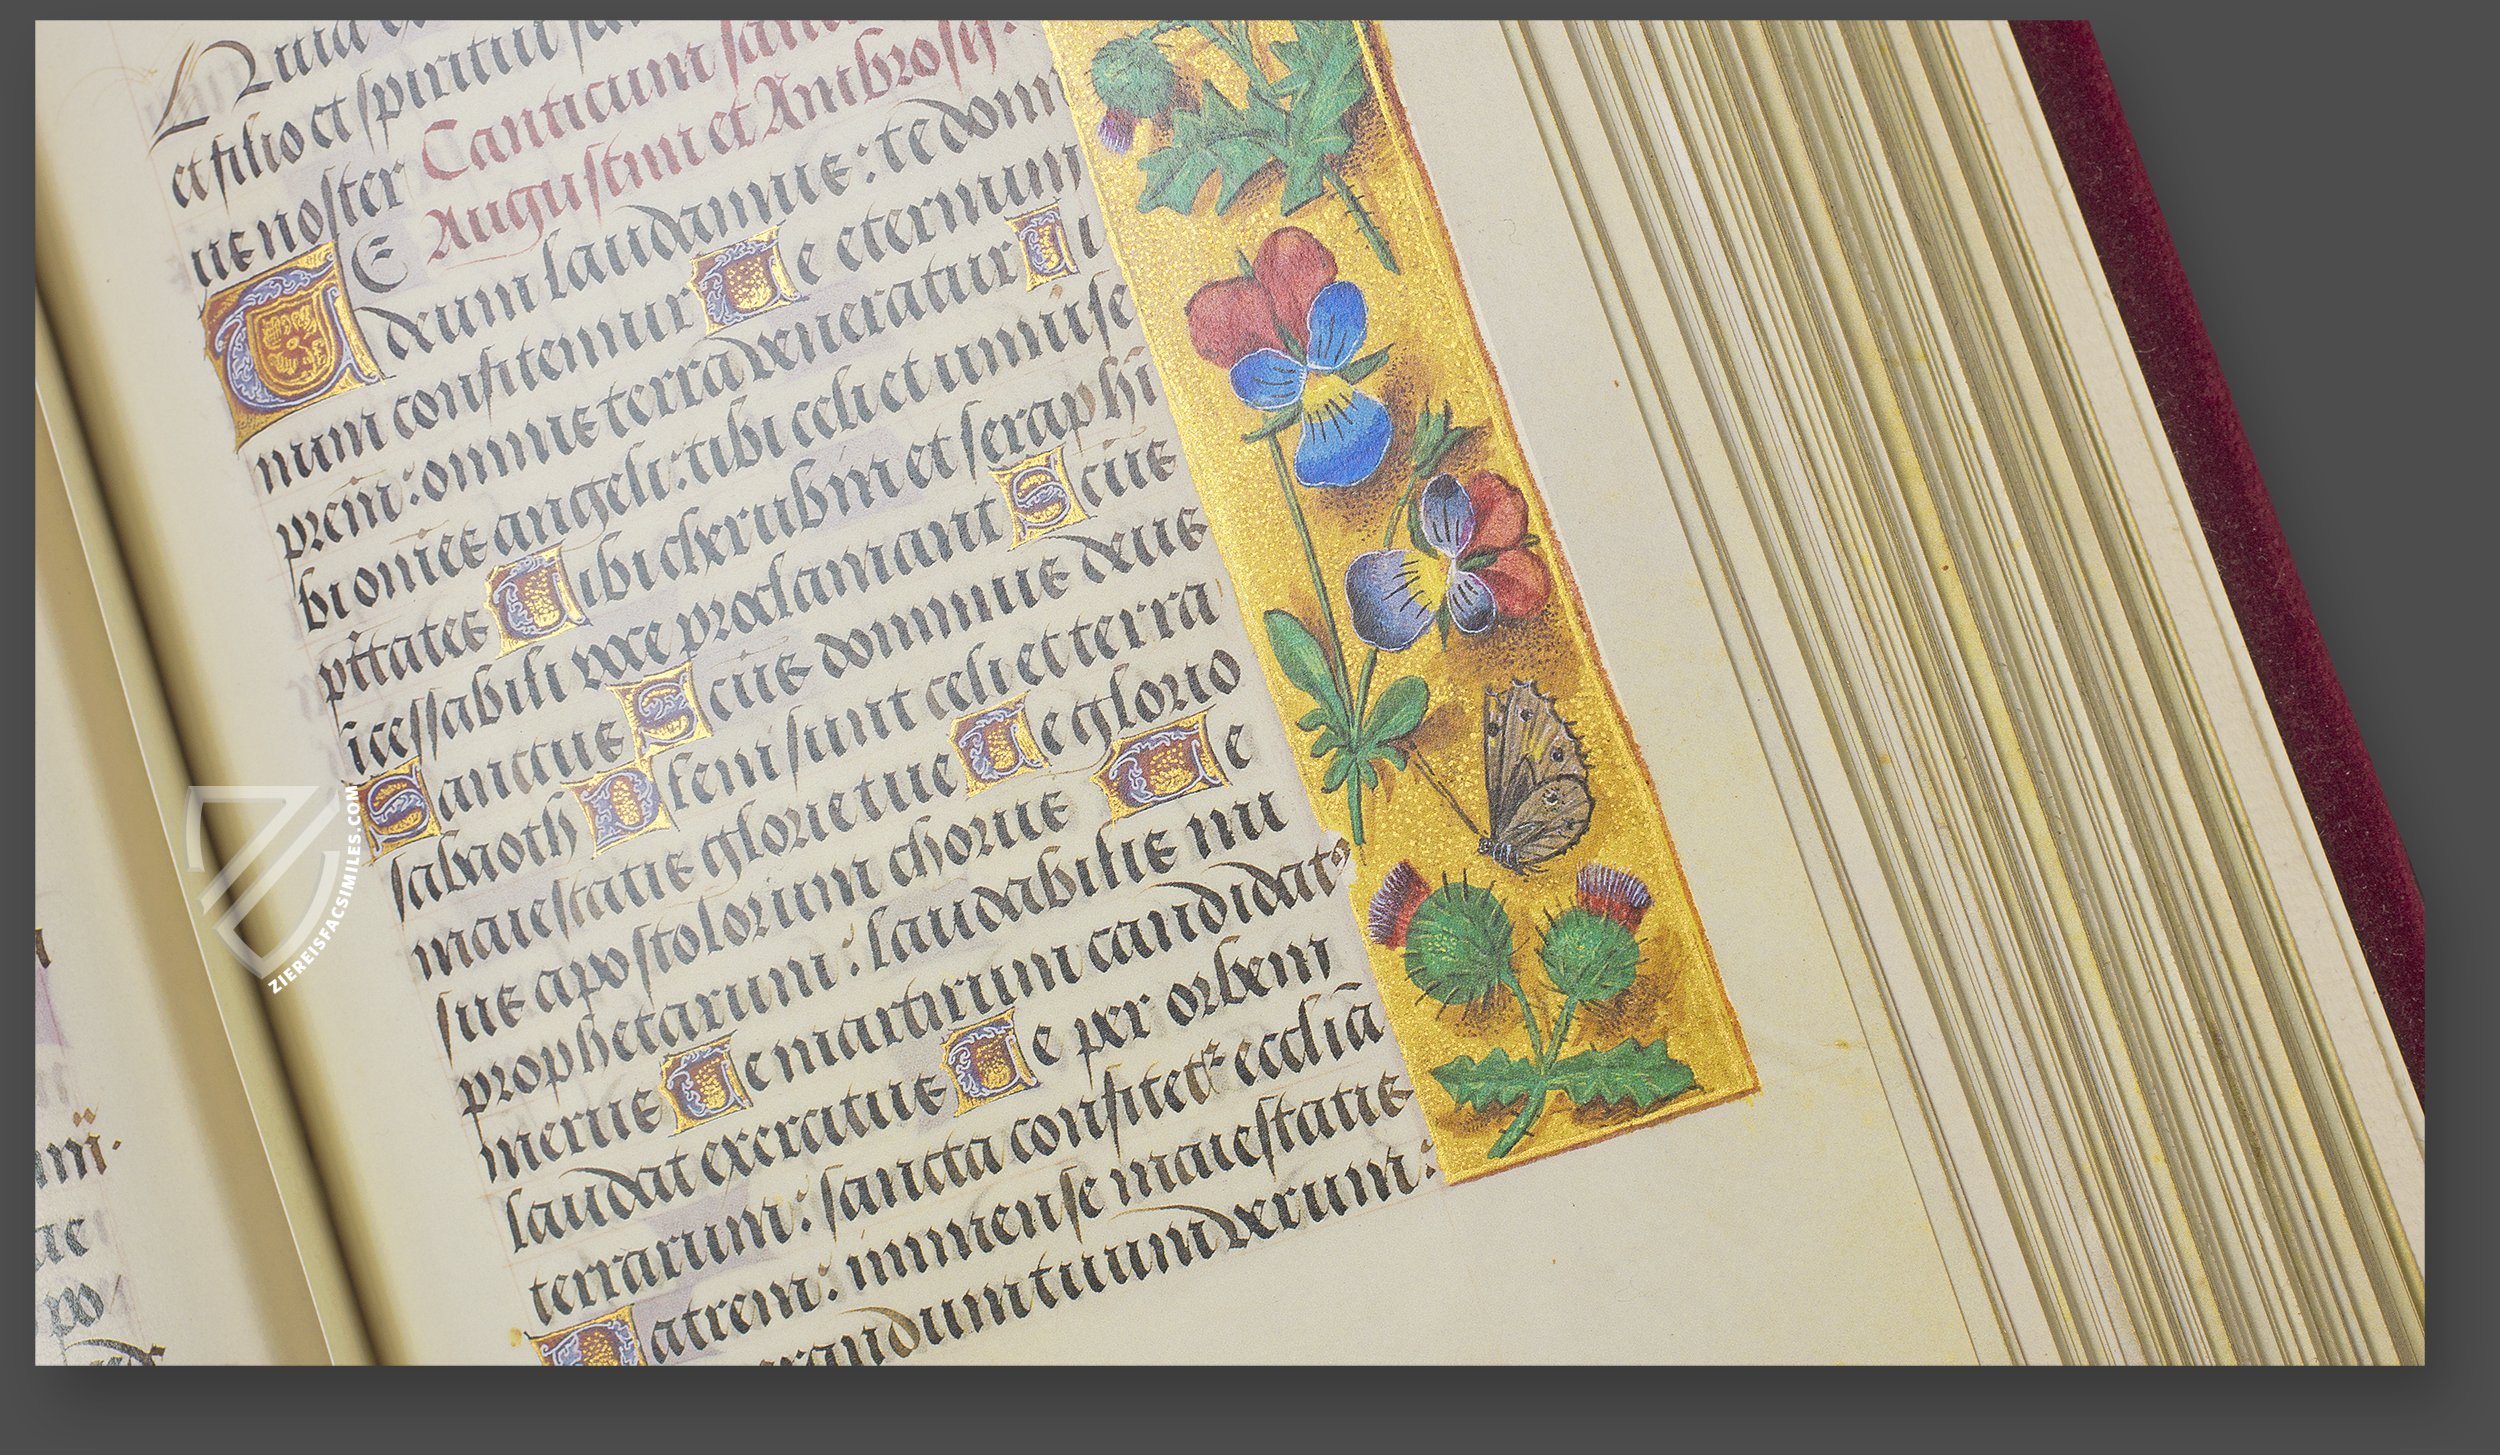 et filio et spiritui
ue noster Canticum
Augustini et Ambrosii.
TE deum laudamus: te domi
num confitemur Te eternum
prem: omnis terra veneratur Ti
bi om̄es angeli: tibi celi et uniuͥse
pt̄tates Tibi cherubin et seraphi
icessabili voce proclamant Sc̄us
Sanctus Sc̄us dominus deus
sabaoth Pleni sunt celi et terra
maiestatis glorie tue Te glorio
sus apostolorum chorus Te
prophetarum: laudabilis nu
merus Te martirum candidatꝰ
laudat exercitus Te per orbem
terrarum: sancta confitetᷣ eccliā
Patrem: immense maiestatis
erandum tuum verum:
po
ZIEREISFACSIMILES.COM